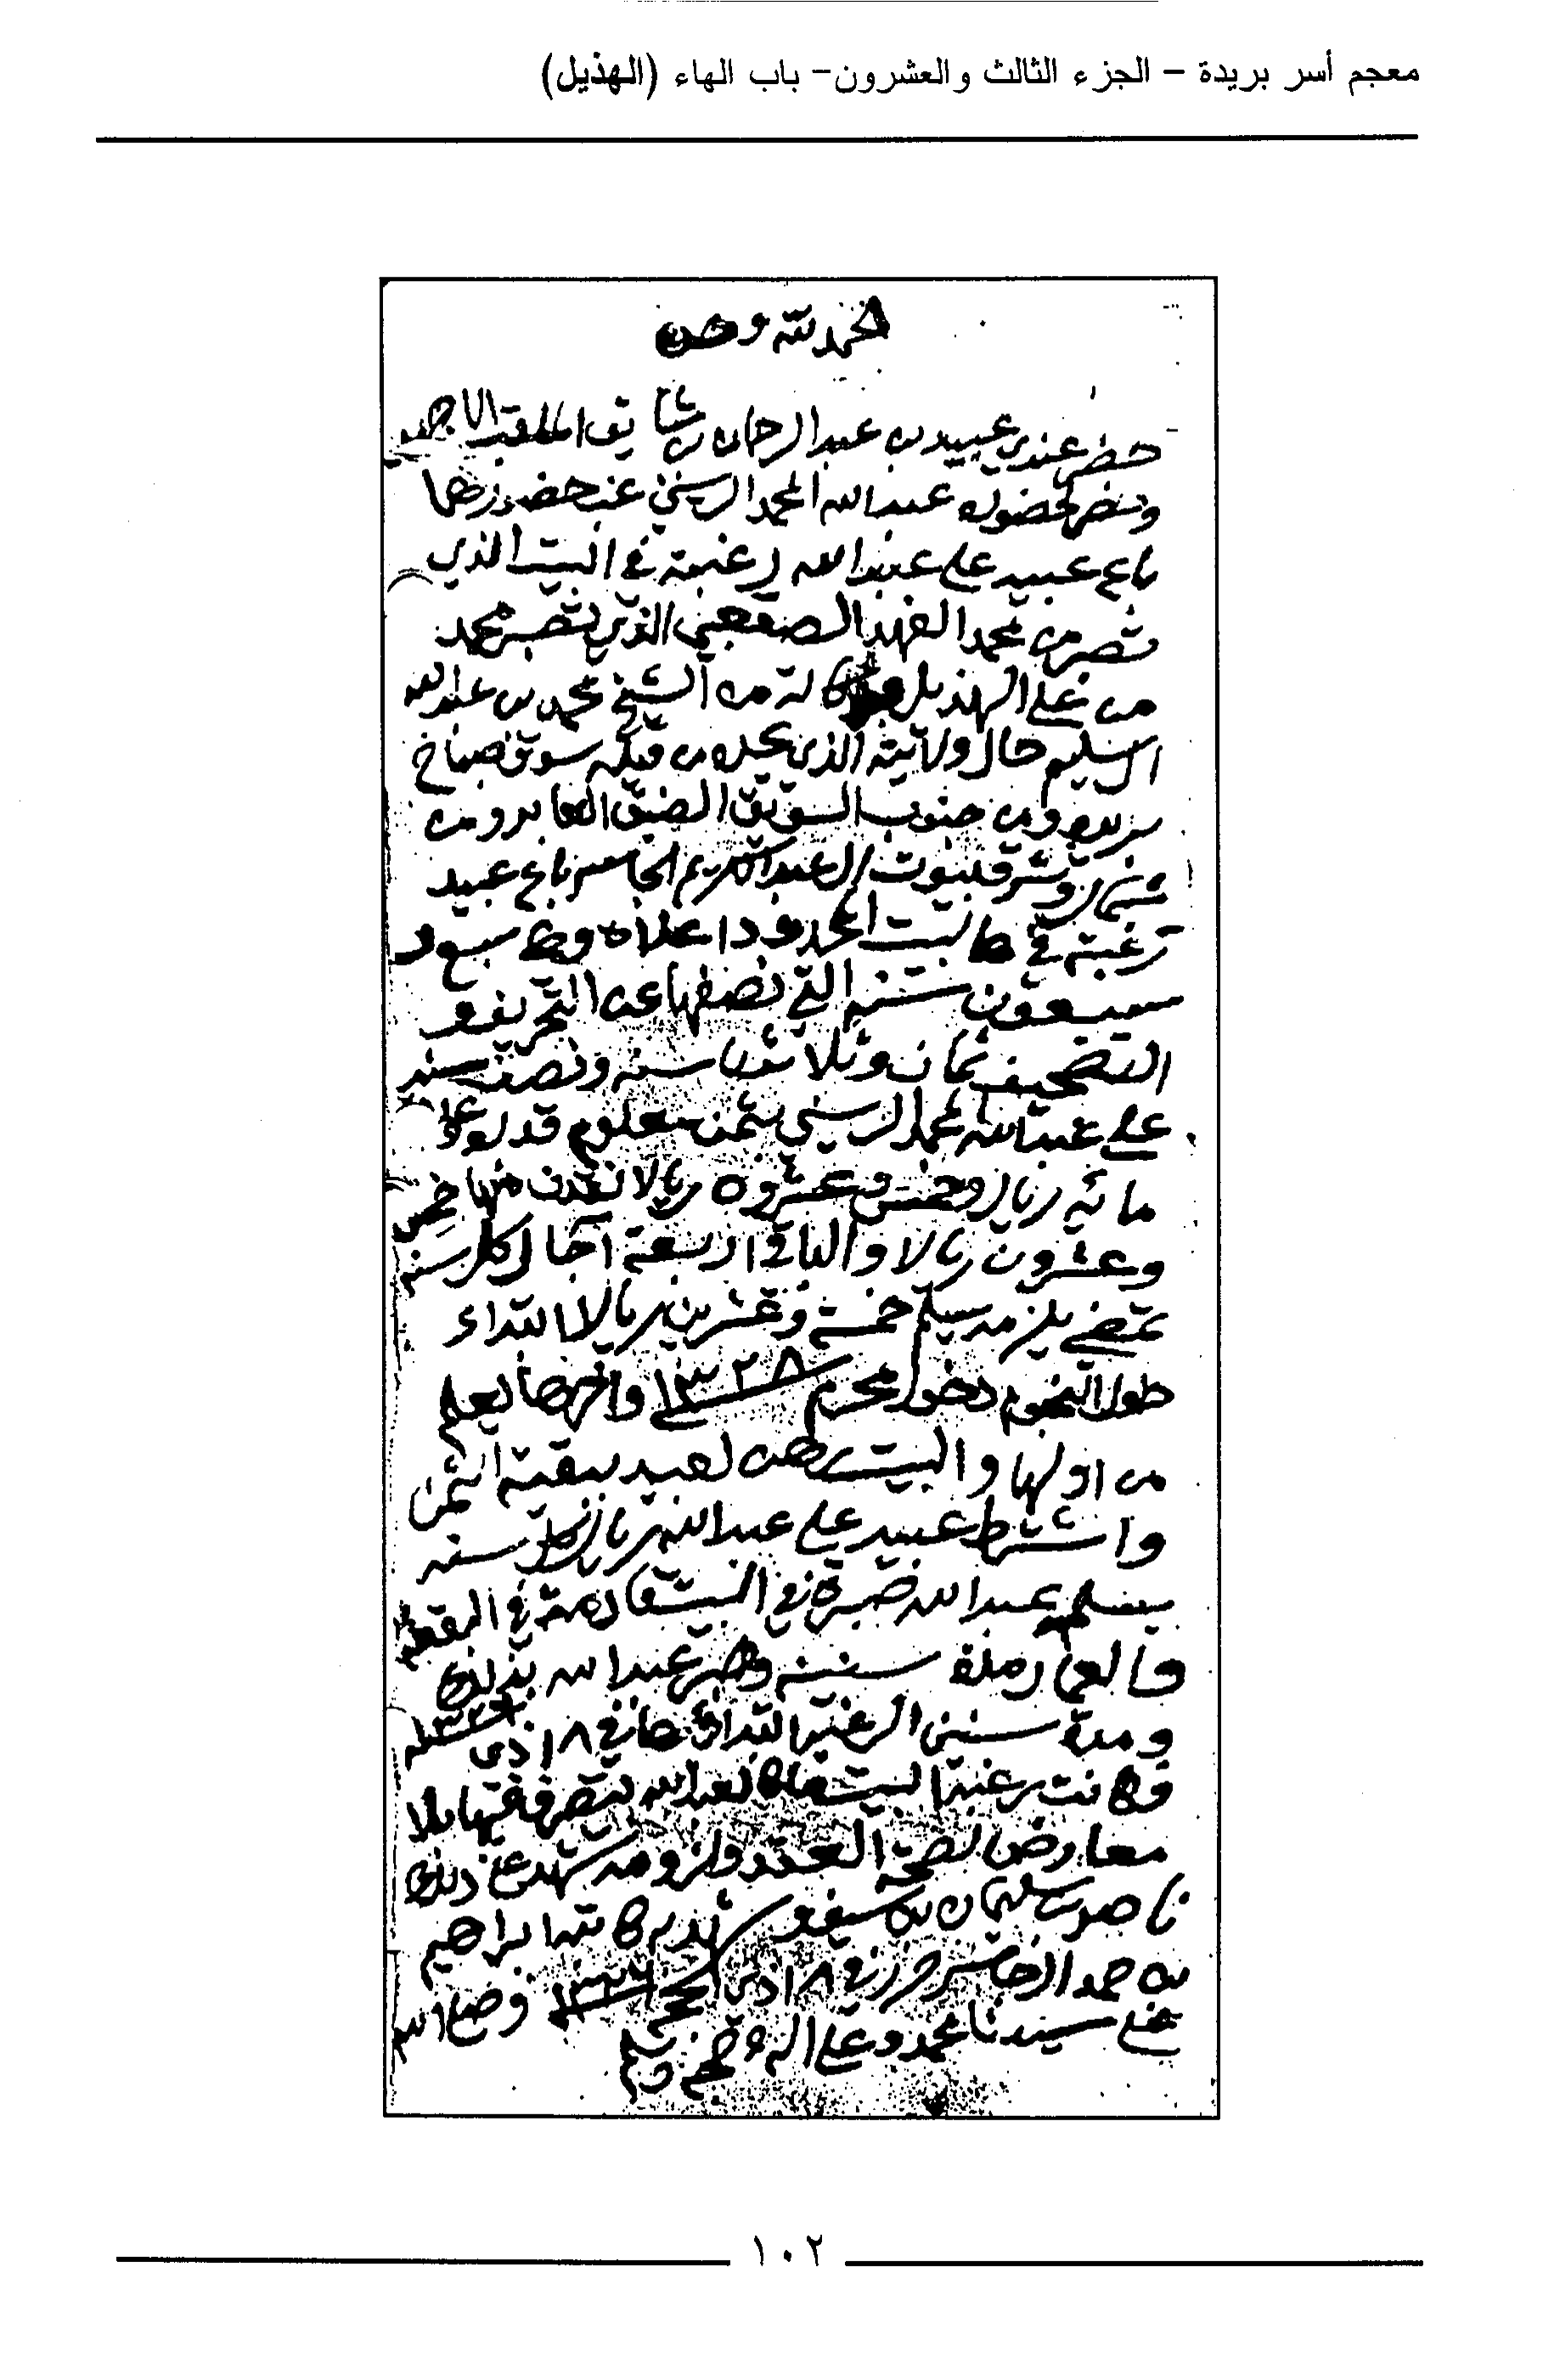 معجم أسر بريدة – الجزء الثالث والعشرون– باب الهاء (الهذيل)
الحمد لله وحده
حضر عندي عبيد بن عبدالرحمان الملقب
وحضر لحضوره عبدالله المحمد الرسيني عند حضورهما
باع عبيد على عبدالله رغبته في البيت الذي
تصبره من محمد الفهد الصقعبي الذي تصبره محمد
من علي الهذيل وكالة من الشيخ محمد بن عبدالله
السليم حال ولايته الذي يحده من قبله سوق صناخ
بريده ومن جنوب السويق الضيق العابر ومن
شمال وشرق بيوت العبدالكريم الجاسر باع عبيد
رغبته في هالبيت المحدود اعلاه وهي سبع و
سبعون سنه التي نصفها عن التحريف و
التصحيف ثمان وثلاثون سنه ونصف سنه
على عبدالله المحمد الرسيني بثمن معلوم قدره
مائة ريال وخمس وعشرون ريالا نقدن منها خمس
وعشرون ريالا والباقي اربعة آجال كل سنه
تمضي يلزمه يسلم خمسة وعشرين ريالا ابتداء
حلول النجوم دخول محرم ١٣٢٨ واخرها يعلم
من اولها والبيت رهن لعبيد ببقية الثمن
واشترط عبيد على عبدالله ريال كل سنه
يسلمه عبدالله صبرة في البيت قادمة في
مدة سنينه عبدالله بذلك
ومدة سنين الرغبة ابتداؤها في ١٨ ذي
فكانت رغبة البيت لعبدالله يتصرف فيها بلا
معارض لصحة العقد ولزومه شهد على ذلك
ناصر بن سليمان بن سيف وشهد به كاتبه ابراهيم
بن حمد الجاسر حرر في ١٨ ذي الحجه ١٣٢٦ وصلى الله
على سيدنا محمد وعلى اله وصحبه وسلم
١٠٢